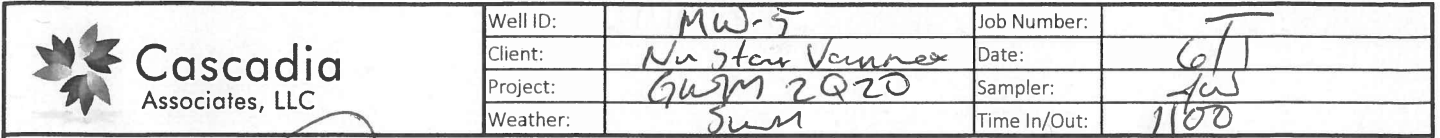 Cascadia
Associates, LLC
Well ID: MW-5 Job Number:
Client: NuStar Vannex Date: 6/1
Project: GWM 2Q20 Sampler:
Weather: Sun Time In/Out: 1100